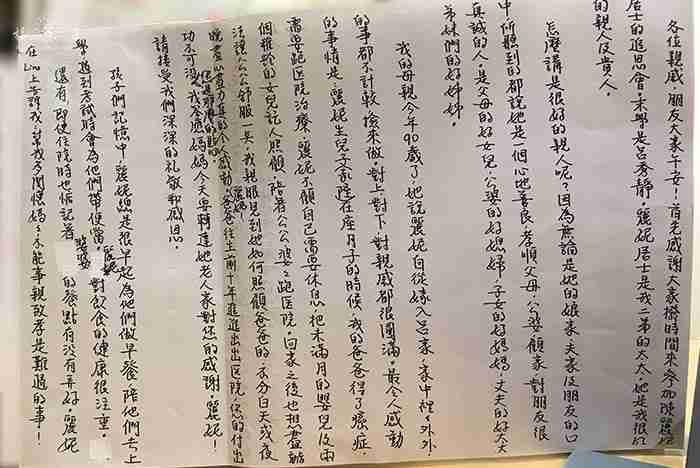 各位親戚，朋友大家午安！首先感謝大家撥時間來參加陳麗妮
居士的追思會。末學是呂秀靜，麗妮居士是我二弟的太太，她是我很好
的親人及貴人。
怎麼講是很好的親人呢？因為無論是她的娘家，夫家及朋友的口
中所聽到的都說她是一個心地善良，孝順父母，公婆顧家，對朋友很
真誠的人，是父母的好女兒，公婆的好媳婦，子女的好媽媽，丈夫的好太太
弟妹們的好姊姊。
我的母親今年90歲了，她說麗妮自從嫁入呂家，家中裡裡外外
的事都不計較撿來做，對上對下，對親戚都很圓滿，最令人感動
的事情是，麗妮生兒子家陞在座月子的時候，我的爸爸得了癌症，
需要跑医院治療，麗妮不顧自己需要休息，把未滿月的嬰兒及兩
個稚齡的女兒託人照顧，陪著公公婆婆跑医院，回家之後也想盡辦
法讓公公舒服一点，我親眼見到她如何照顧爸爸的，不分白天或夜
晚盡心盡力真的令人感動，爸爸往生前十年進進出出医院，您的付出
功不可沒，我今感媽媽今天要轉達她老人家對您的感謝，麗妮！
請接受我們深深的礼敬和感恩。
孩子們記憶中麗妮總是很早起為他們做早餐，陪他們去上
學，進到考試時會為他們帶便當，麗妮對飲食的健康很注重。
還有，即使住院時也惦記著婆婆的餐點有沒有弄好，麗妮
在Line上告訴我，幫我多関懷媽媽，不能事親致孝是難過的事！